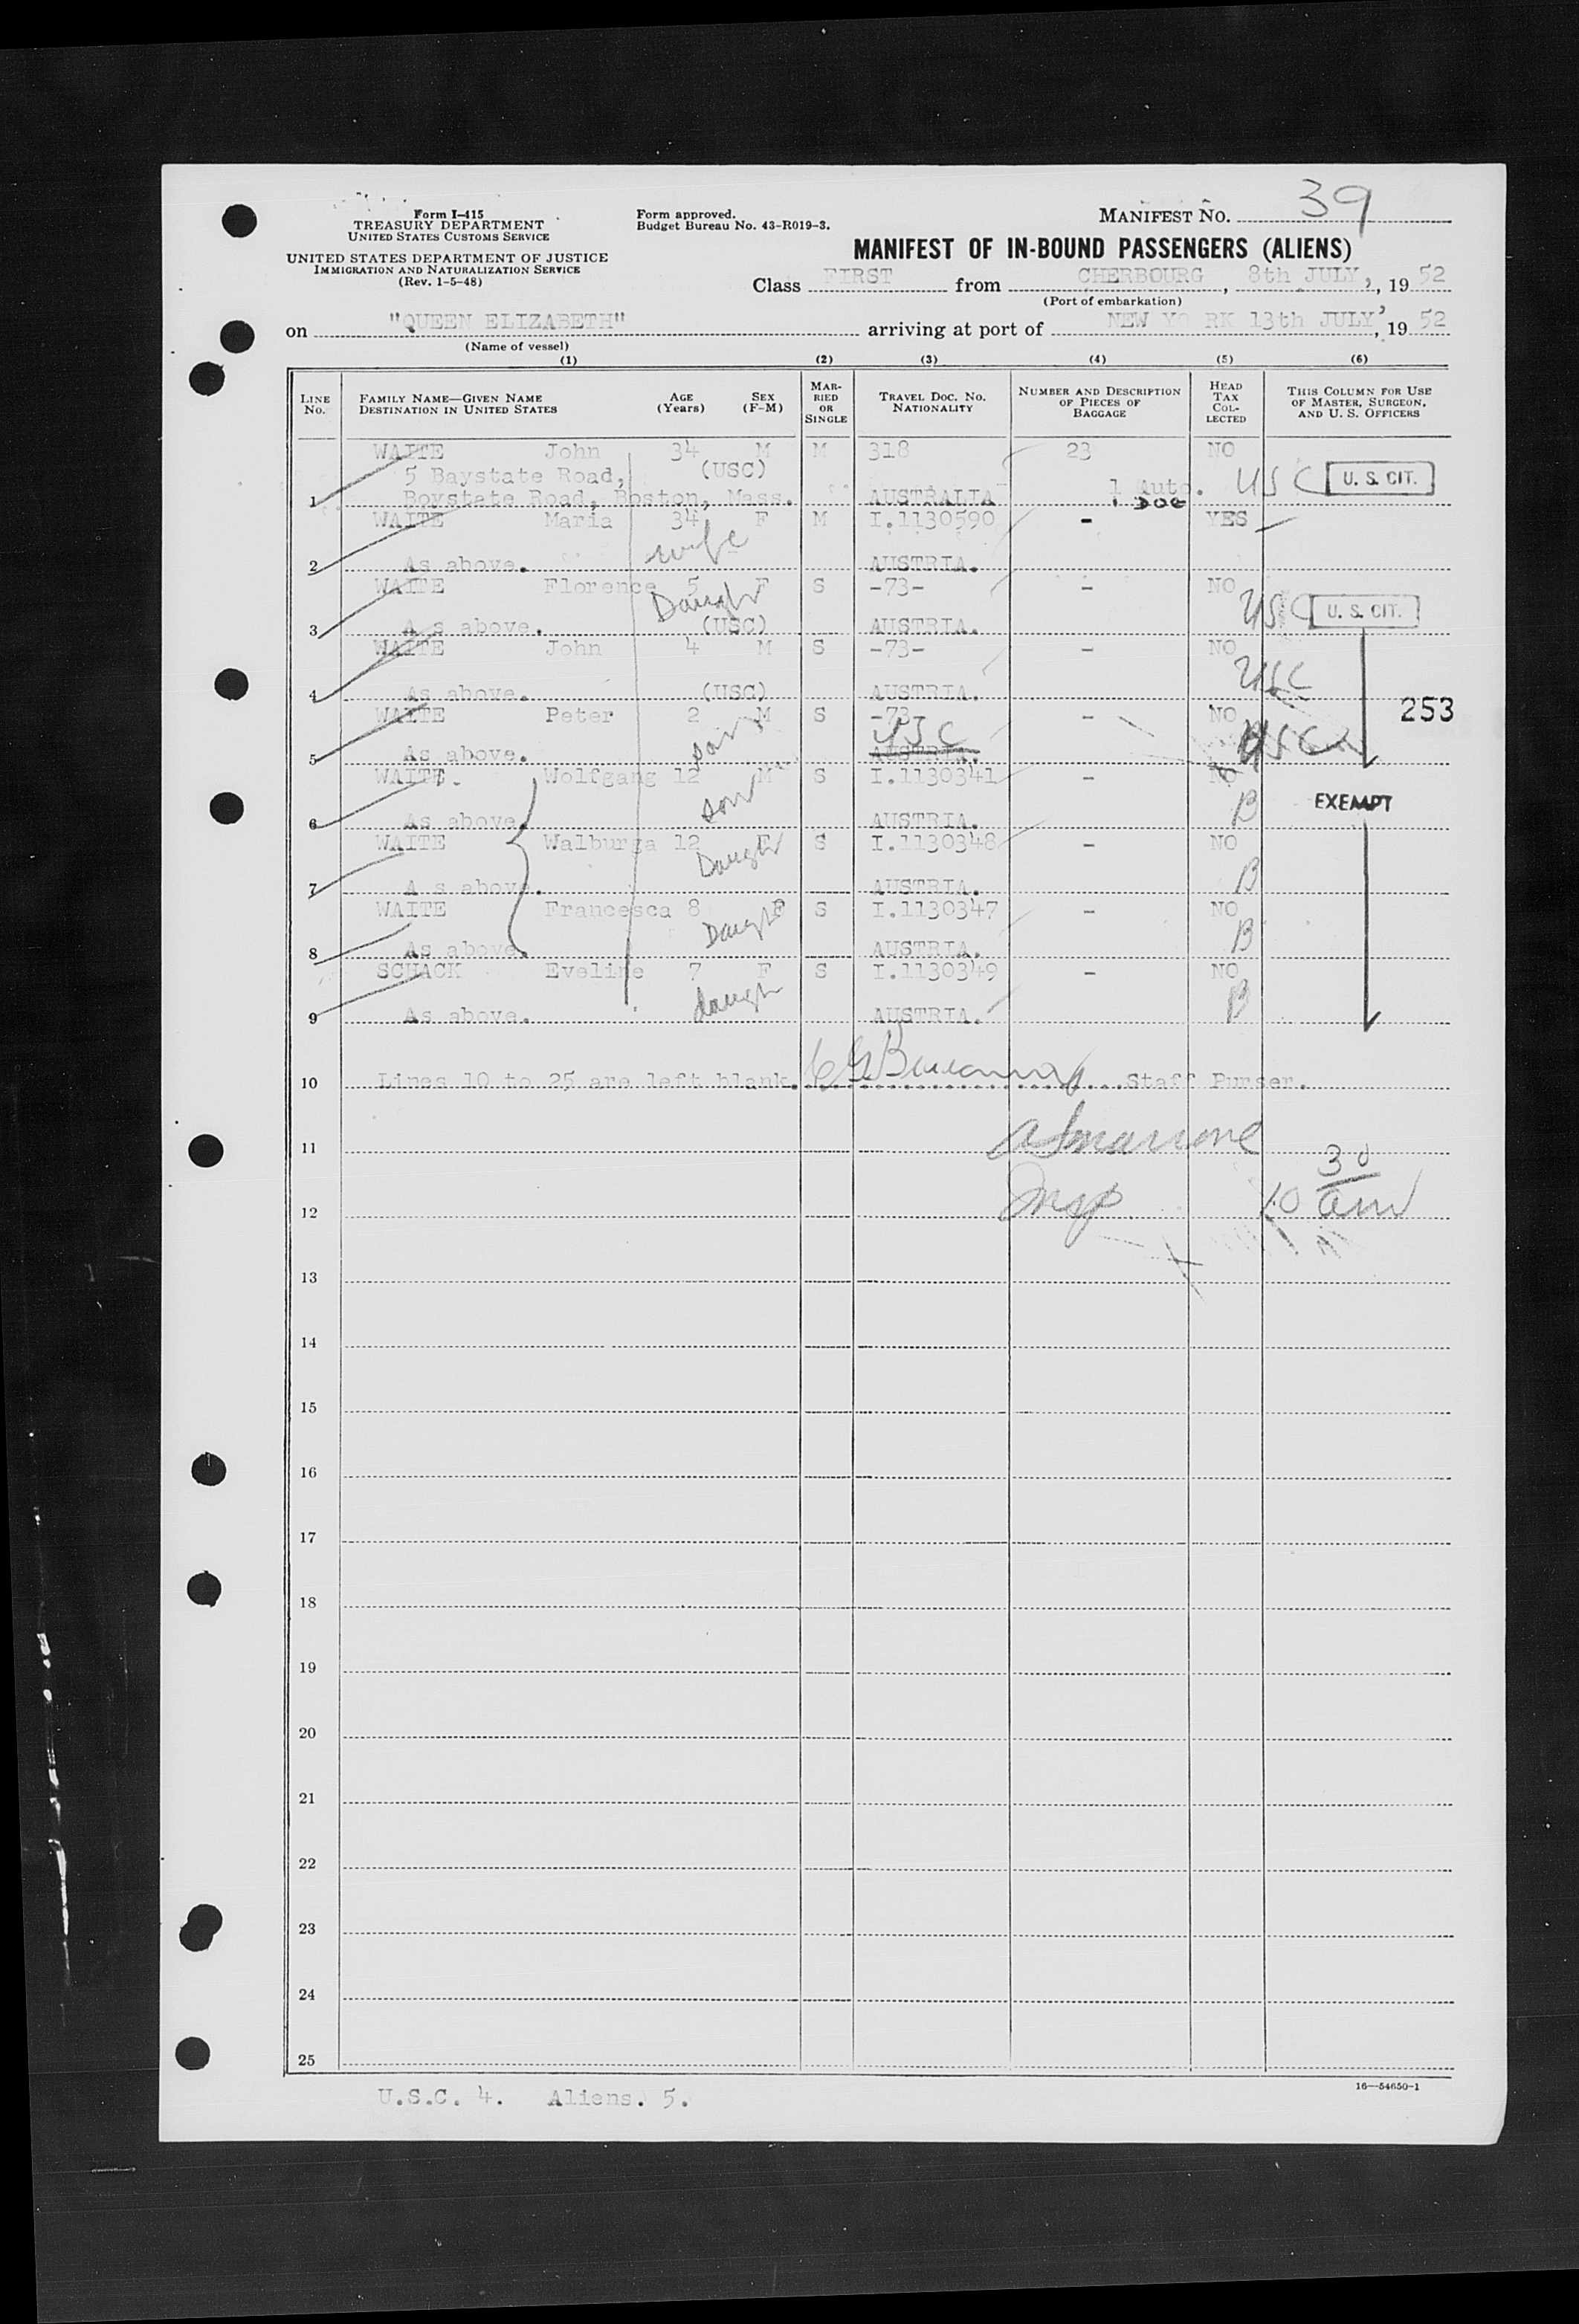 Form I-415
TREASURY DEPARTMENT
UNITED STATES CUSTOMS SERVICE
UNITED STATES DEPARTMENT OF JUSTICE
IMMIGRATION AND NATURALIZATION SERVICE
(Rev. 1-5-48)
Form approved.
Budget Bureau No. 43-R019-3.
MANIFEST NO. 39
MANIFEST OF IN-BOUND PASSENGERS (ALIENS)
Class FIRST from CHERBOURG, 8th JULY, 19 52
(Port of embarkation)
on "QUEEN ELIZABETH" arriving at port of NEW YO RK 13th JULY, 19 52
(Name of vessel)
(1) (2) (3) (4) (5) (6)
LINE No. FAMILY NAME—GIVEN NAME DESTINATION IN UNITED STATES AGE (Years) SEX (F-M) MARRIED OR SINGLE TRAVEL DOC. NO. NATIONALITY NUMBER AND DESCRIPTION OF PIECES OF BAGGAGE HEAD TAX COLLECTED THIS COLUMN FOR USE OF MASTER, SURGEON, AND U. S. OFFICERS
WAITE John 34 M M 318 23 NO
5 Baystate Road, (USC) 1 Auto. USC U. S. CIT.
1 Boystate Road, Boston, Mass. AUSTRALIA 1 DOG
WAITE Maria 34 F M I.1130590 - YES
wife
2 As above. AUSTRIA.
WAITE Florence 5 F S -73- - NO
Daught USC U. S. CIT.
3 A s above. (USC) AUSTRIA.
WAITE John 4 M S -73- - NO
USC
4 As above. (USC) AUSTRIA.
WAITE Peter 2 M S -73- - NO 253
son USC USC
5 As above. AUSTRIA.
WAITE. Wolfgang 12 M S I.1130341 - NO
son B EXEMPT
6 As above. AUSTRIA.
WAITE Walburga 12 F S I.1130348 - NO
Daught B
7 A s above. AUSTRIA.
WAITE Francesca 8 F S I.1130347 - NO
Daught B
8 As above. AUSTRIA.
SCHACK Eveline 7 F S I.1130349 - NO
daugh B
9 As above. AUSTRIA.
10 Lines 10 to 25 are left blank. Staff Purser.
11
12 Insp 10 30 am
13
14
15
16
17
18
19
20
21
22
23
24
25
16—54650-1
U.S.C. 4. Aliens. 5.